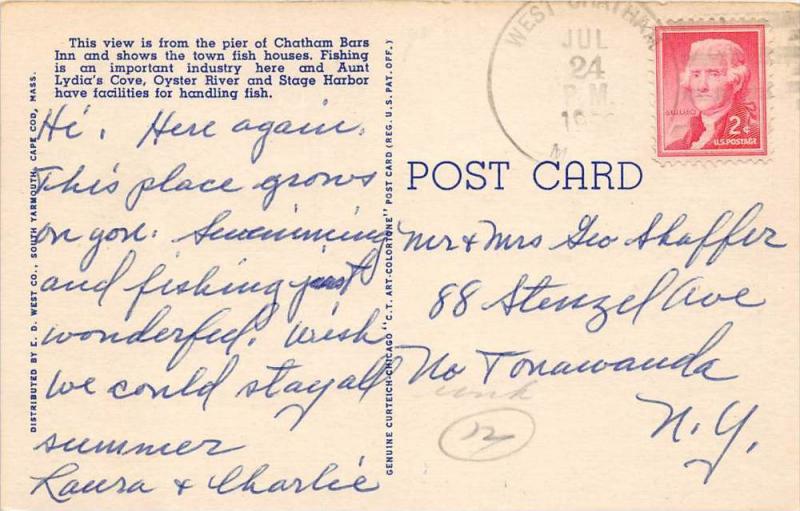 This view is from the pier of Chatham Bars
Inn and shows the town fish houses. Fishing
is an important industry here and Aunt
Lydia's Cove, Oyster River an Stage Harbor
have facilities for handling fish.
Hi. Here again.
This place grows
on you. Swimming
and fishing just
wonderful. Wish
we could stay all
summer
Laura & Charlie
DISTRIBUTED BY E. D. WEST CO., SOUTH YARMOUTH, CAPE COD, MASS.
GENUINE CURTEICH-CHICAGO "C.T. ART-COLORTONE" POST CARD (REG. U.S. PAT. OFF.)
WEST CHATHAM
JUL
24
P.M.
2¢
U.S. POSTAGE
POST CARD
Mr & Mrs Geo Shaffer
88 Stenzel Ave
No Tonawanda
N.Y.
12